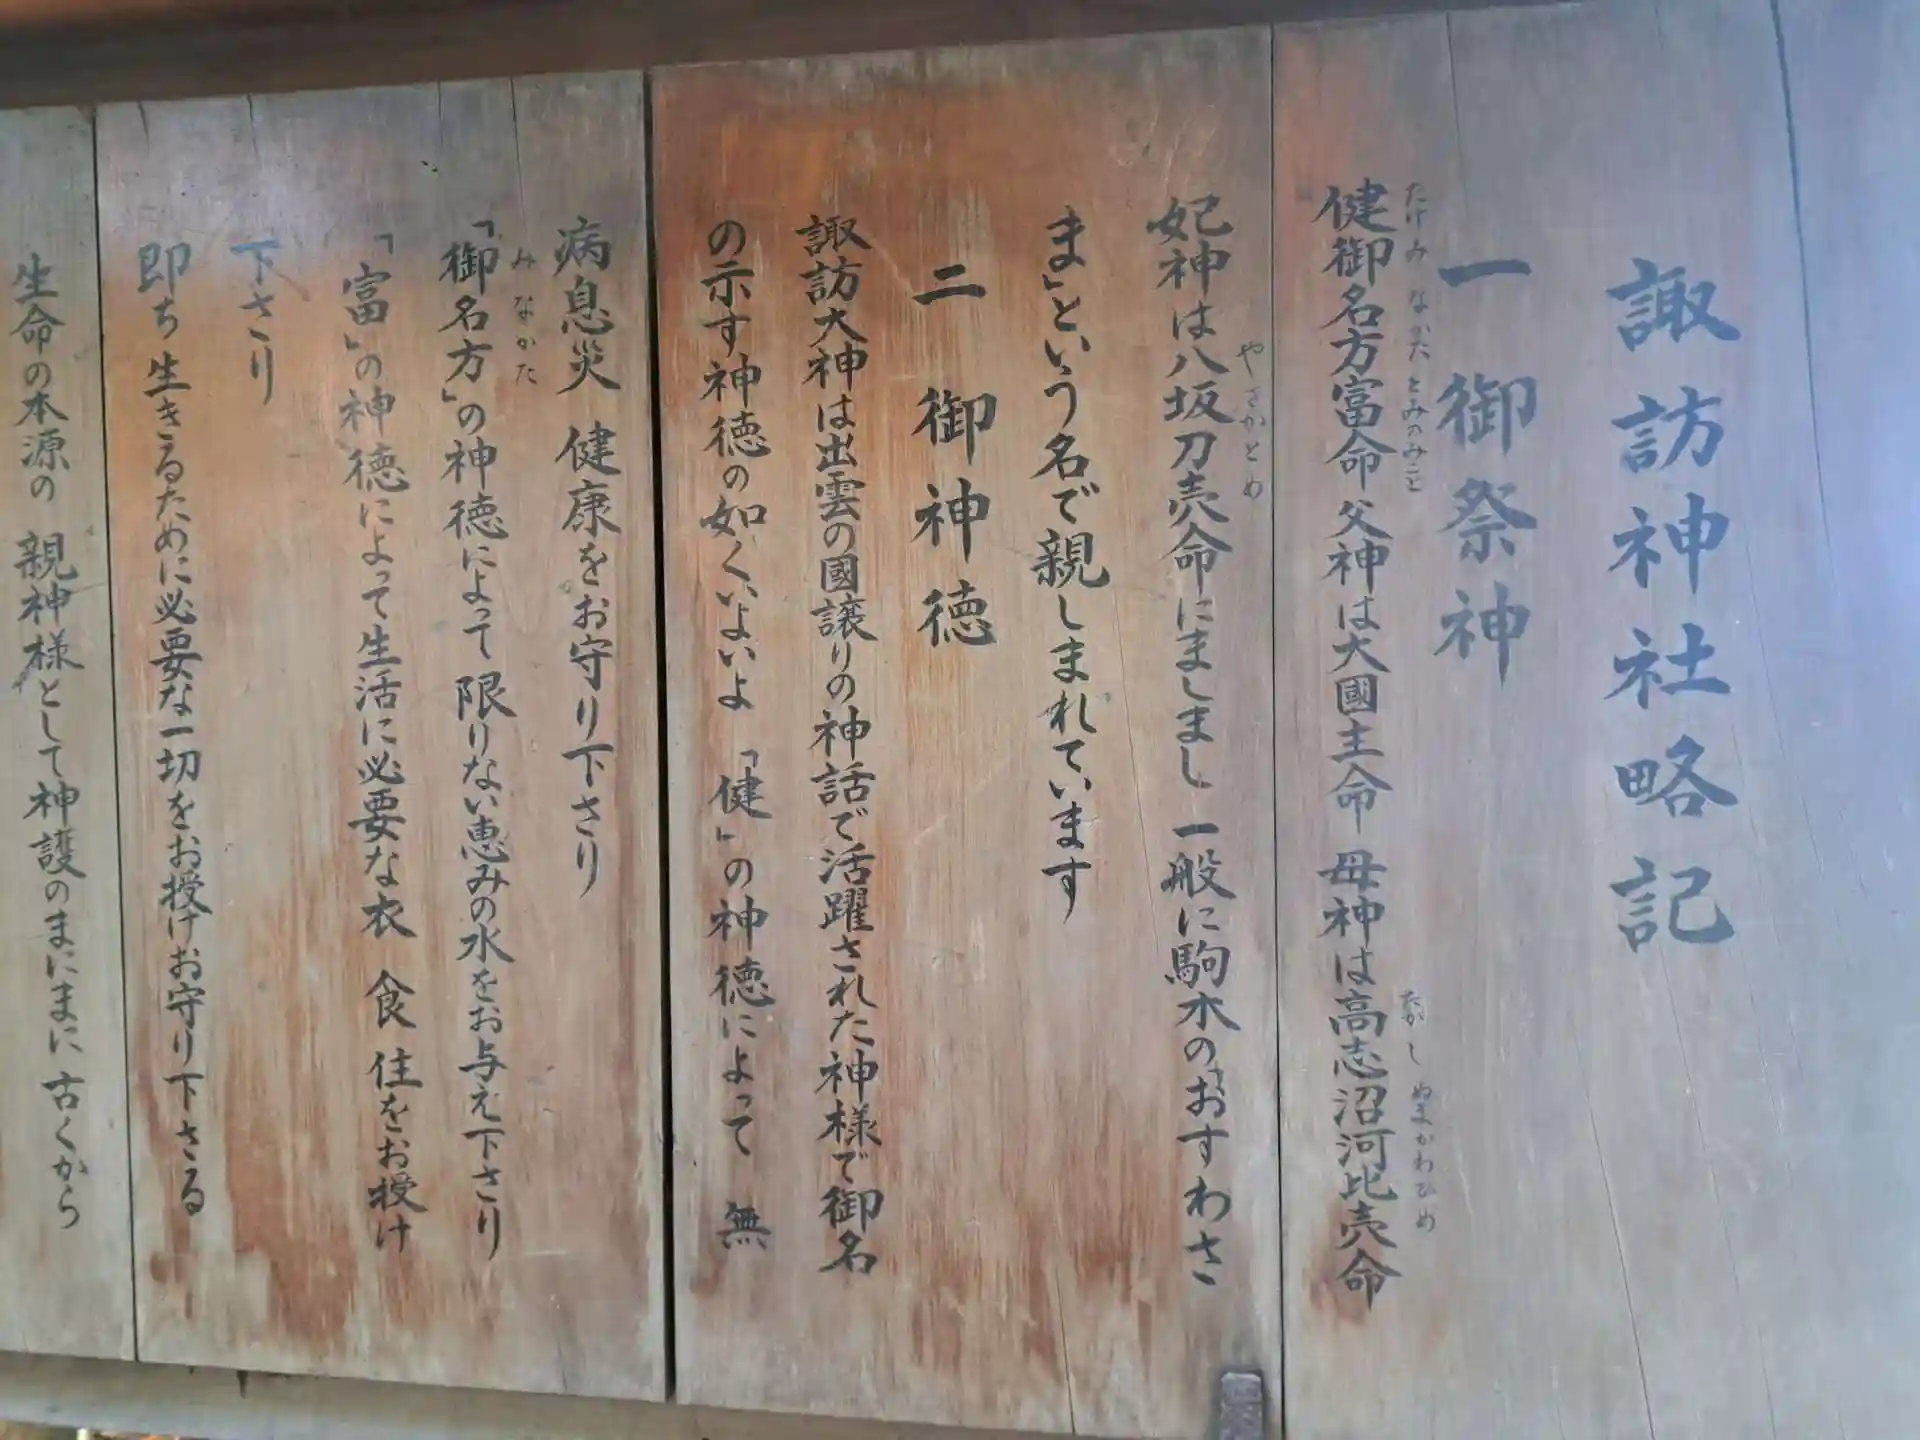 諏訪神社略記
一 御祭神
たけみなかたとみのみこと
健御名方富命 父神は大國主命 母神は高志沼河比売命
たかし ぬまかわひめ
やさかとめ
妃神は八坂刀売命にましまし 一般に駒木の「おすわさ
ま」という名で親しまれています
二 御神徳
諏訪大神は出雲の國譲りの神話で活躍された神様で御名
の示す神徳の如くいよいよ 「健」の神徳によって 無
病息災 健康をお守り下さり
みなかた
「御名方」の神徳によって限りない恵みの水をお与え下さり
「富」の神徳によって生活に必要な衣 食 住をお授け
下さり
即ち生きるために必要な一切をお授けお守り下さる
生命の本源の 親神様として神護のまにまに 古くから